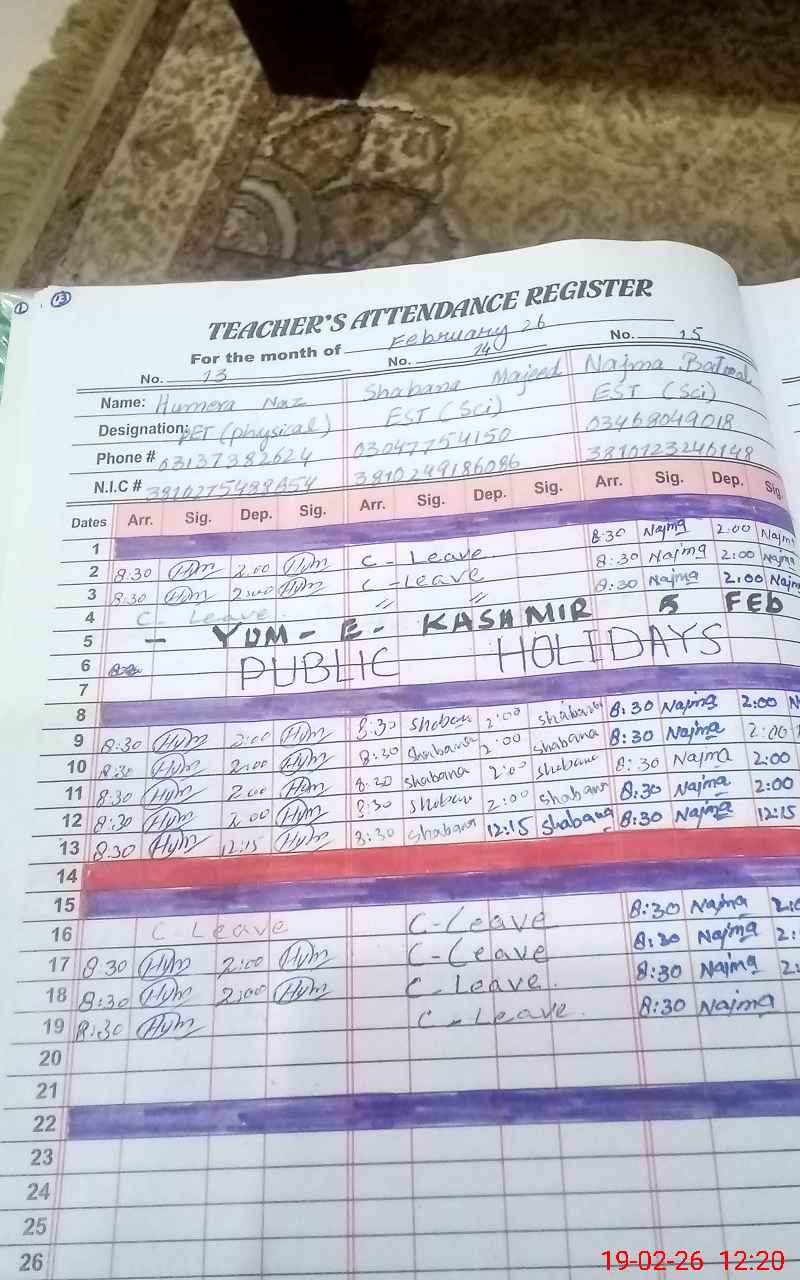 ① ⑬
TEACHER'S ATTENDANCE REGISTER
For the month of February 26
No. 13 No. 14 No. 15
Name: Humera Naz Shabana Majeed Najma Batool
Designation: PET (physical) EST (Sci) EST (Sci)
Phone # 03137382624 03047754150 03468049018
N.I.C # 3810275488654 3810249186086 3810123246148
Dates Arr. Sig. Dep. Sig. Arr. Sig. Dep. Sig. Arr. Sig. Dep. Sig.
1
2 8:30 Hum 2:00 Hum C - Leave 8:30 Najma 2:00 Najm
3 8:30 Hum 2:00 Hum C - Leave 8:30 Najma 2:00 Najm
4 C - Leave. " " 8:30 Najma 2:00 Najm
5 - YUM - E - KASHMIR 5 FEB
6 PUBLIC HOLIDAYS
7
8
9 8:30 Hum 2:00 Hum 8:30 Shabana 2:00 Shabana 8:30 Najma 2:00 N
10 8:30 Hum 2:00 Hum 8:30 Shabana 2:00 Shabana 8:30 Najma 2:00
11 8:30 Hum 2:00 Hum 8:30 Shabana 2:00 Shabana 8:30 Najma 2:00
12 8:30 Hum 2:00 Hum 8:30 Shabana 2:00 Shabana 8:30 Najma 2:00
13 8:30 Hum 12:15 Hum 8:30 Shabana 12:15 Shabana 8:30 Najma 12:15
14
15
16 C Leave C-Leave 8:30 Najma 2:0
17 8:30 Hum 2:00 Hum C-Leave 8:30 Najma 2:
18 8:30 Hum 2:00 Hum C-Leave. 8:30 Najma 2:
19 8:30 Hum C-Leave. 8:30 Najma
20
21
22
23
24
25
26
19-02-26 12:20